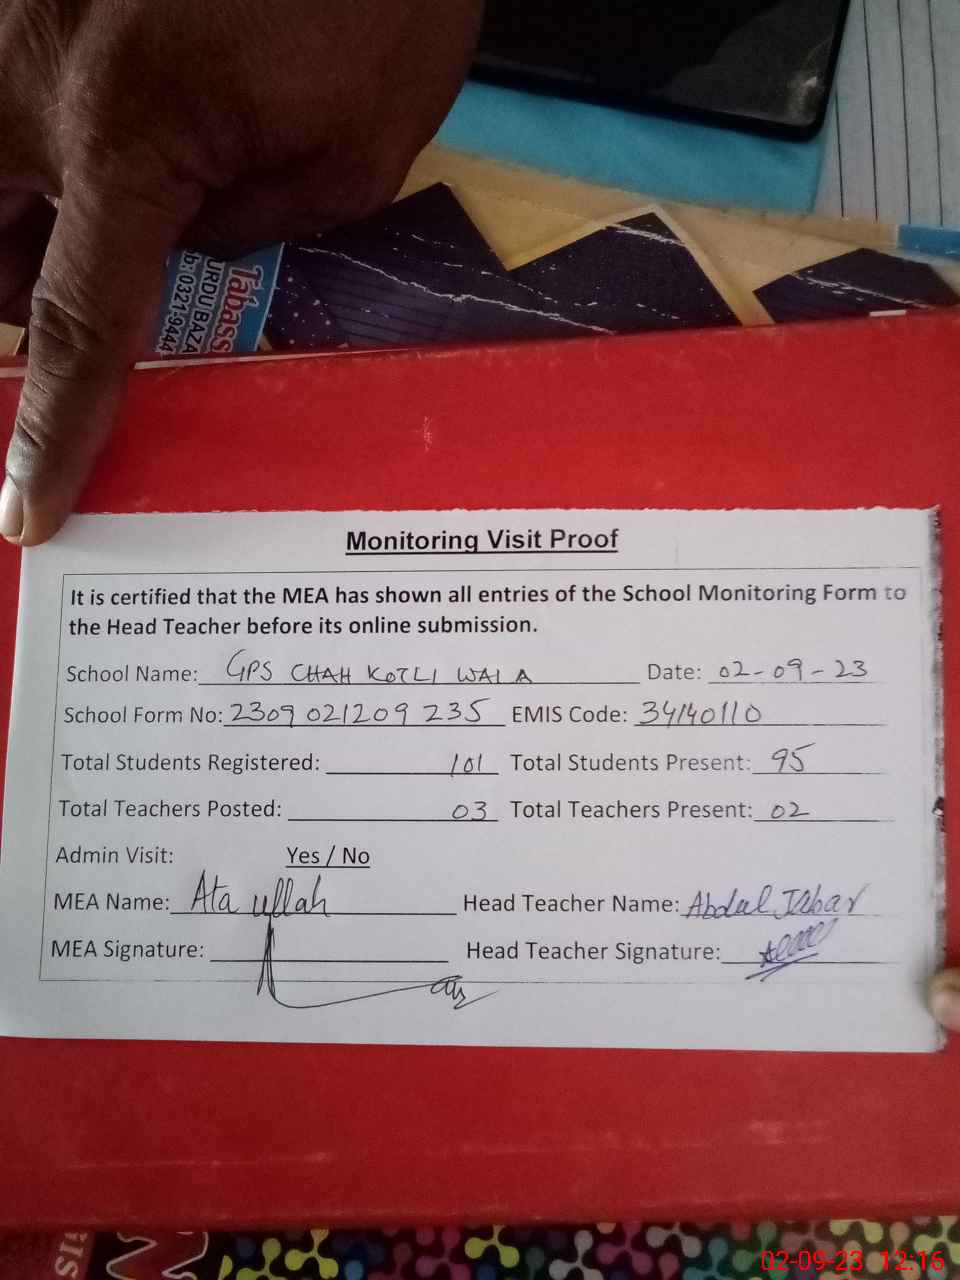 Tabass
URDU BAZA
b: 0321-9444
Monitoring Visit Proof
It is certified that the MEA has shown all entries of the School Monitoring Form to
the Head Teacher before its online submission.
School Name: GPS CHAH KOTLI WALA Date: 02-09-23
School Form No: 2309 021209 235 EMIS Code: 34140110
Total Students Registered: 101 Total Students Present: 95
Total Teachers Posted: 03 Total Teachers Present: 02
Admin Visit: Yes / No
MEA Name: Ata ullah Head Teacher Name: Abdul Jabar
MEA Signature: Head Teacher Signature:
02-09-23 12:16